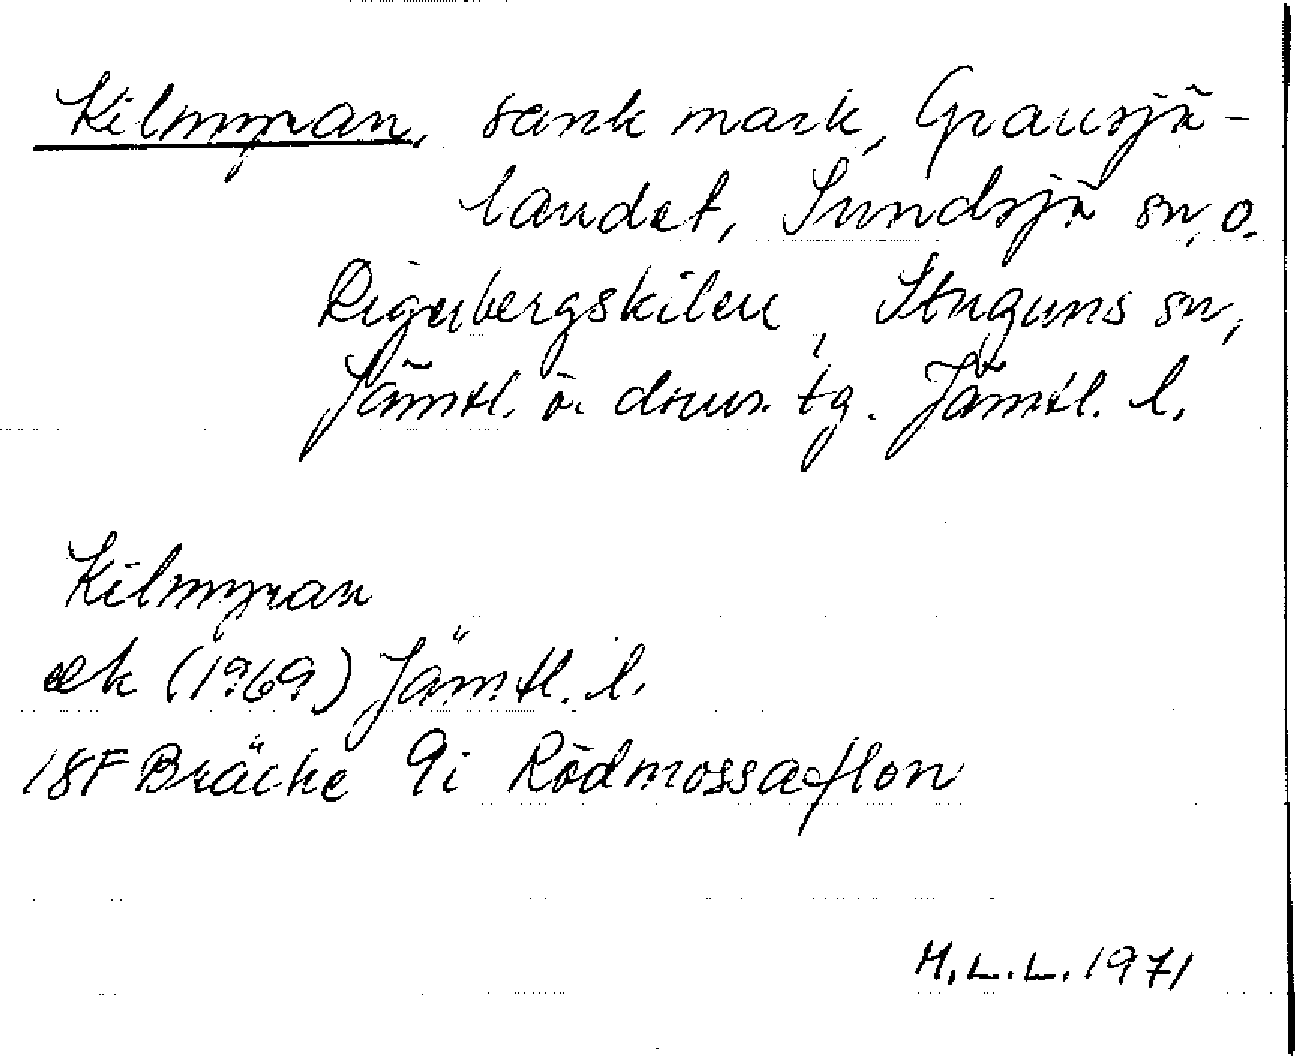 Kilmyran, sank mark, Gransjö-
landet, Sundsjö sn, o.
Rigerbergskilen, Stuguns sn,
Jämtl. ö. doms. tg. Jämtl. l.
Kilmyran
ek (1969) Jämtl. l.
18F Bräcke 9i Rödmossaflon
M.L.L. 1971